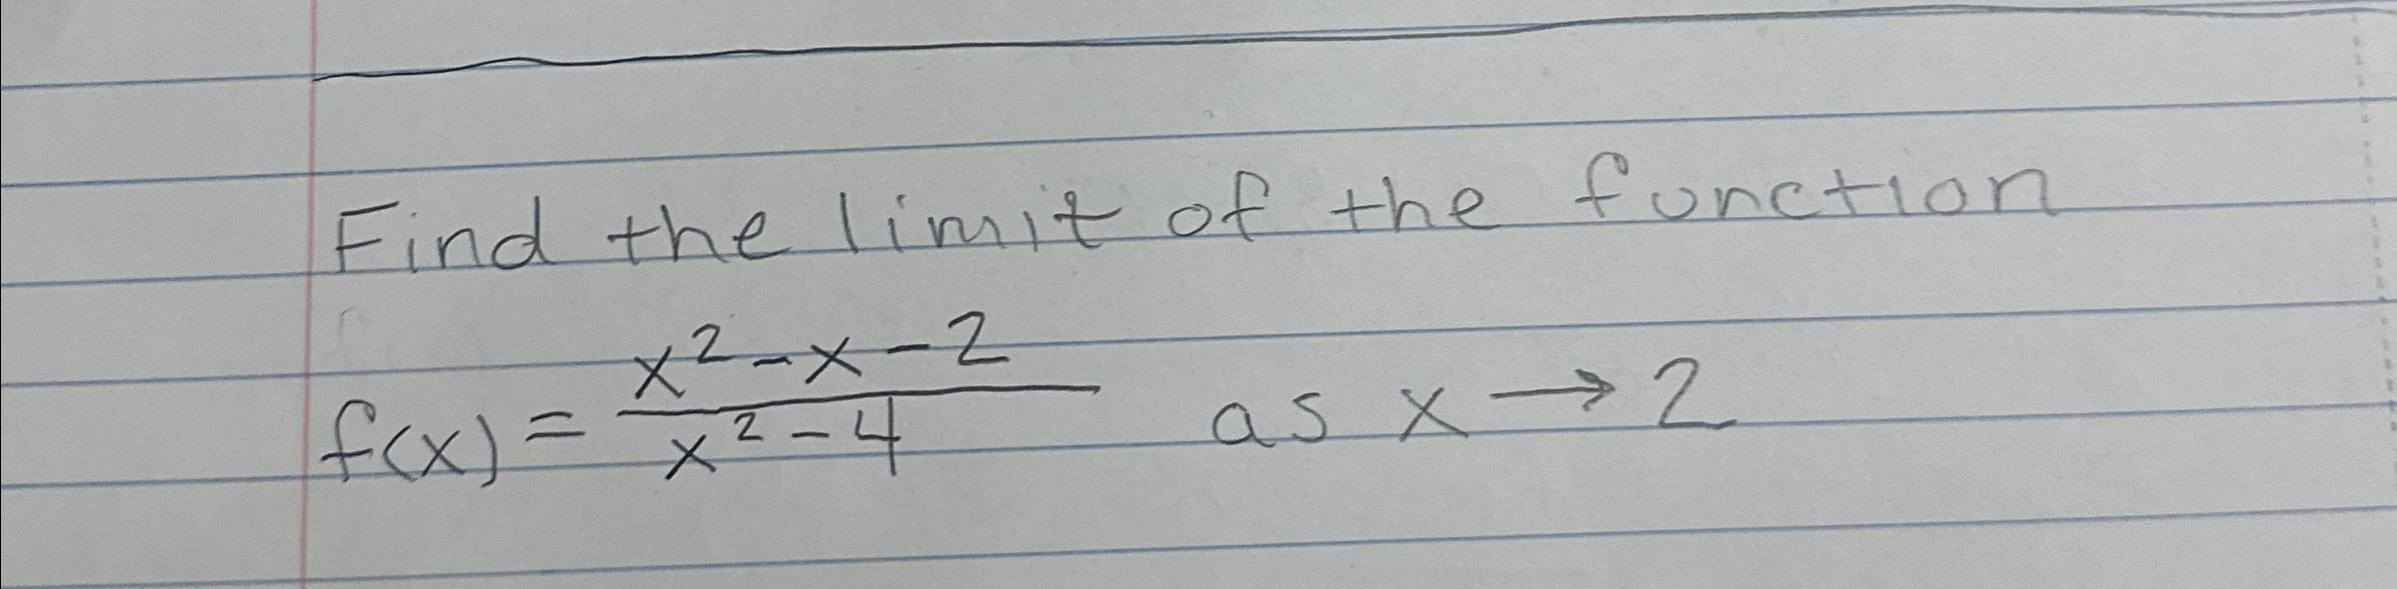 Find the limit of the function
f(x) = \frac{x^2 - x - 2}{x^2 - 4} as x → 2